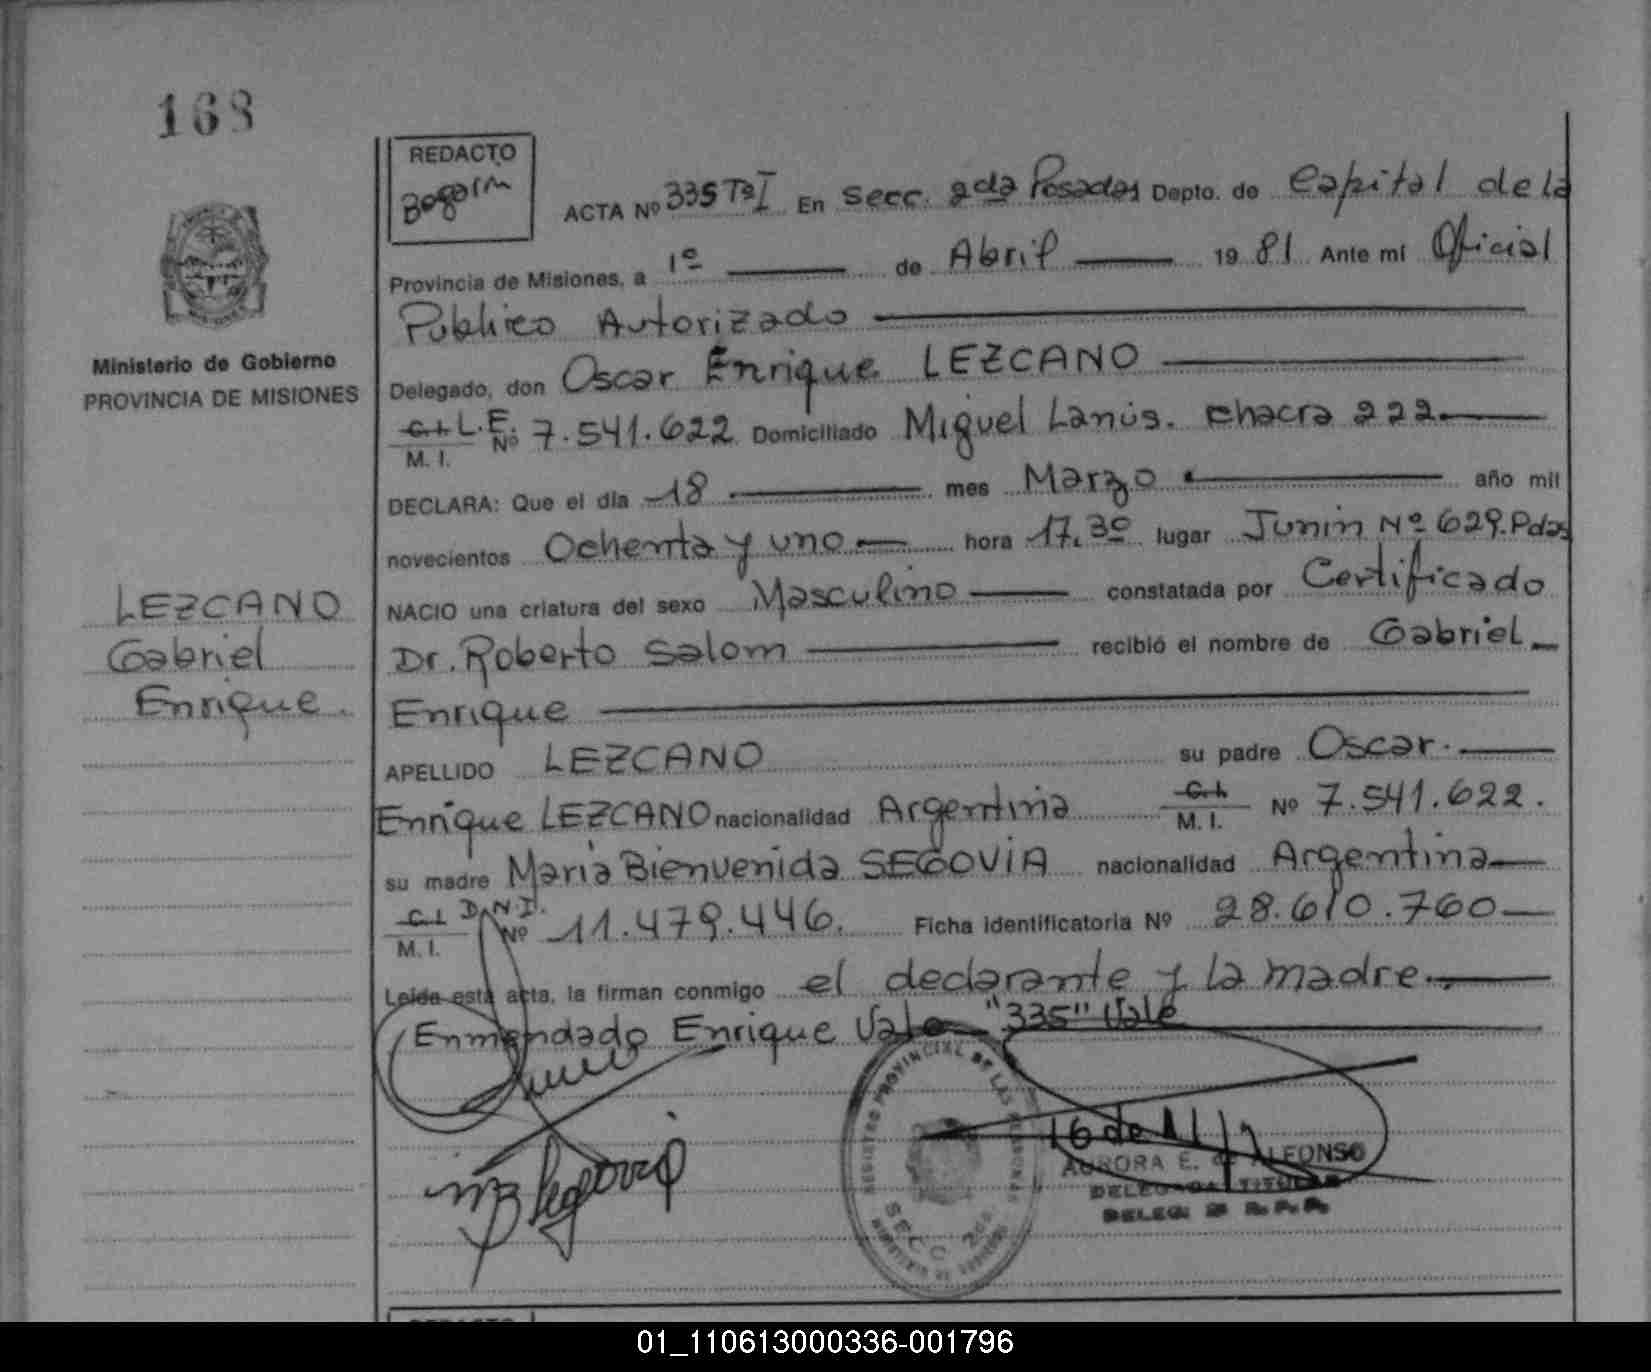 168
REDACTO
Bogarin
ACTA Nº 335 Tº I En Secc. 2da Posadas Depto. de Capital de la
Provincia de Misiones, a 1º de Abril 1981 Ante mi Oficial
Publico Autorizado
Delegado, don Oscar Enrique LEZCANO
C.I. L.E. M.I. Nº 7.541.622 Domiciliado Miguel Lanús. Chacra 222
DECLARA: Que el dia 18 mes Marzo año mil
novecientos Ochenta y uno hora 17,30 lugar Junin Nº 629.Pdas
NACIO una criatura del sexo Masculino constatada por Certificado
Dr. Roberto Salom recibió el nombre de Gabriel
Enrique
APELLIDO LEZCANO su padre Oscar
Enrique LEZCANO nacionalidad Argentina C.I. M.I. Nº 7.541.622.
su madre Maria Bienvenida SEGOVIA nacionalidad Argentina
C.I. D.N.I. M.I. Nº 11.479.446. Ficha identificatoria Nº 28.610.760
Leida esta acta, la firman conmigo el declarante y la madre.
Enmendado Enrique Vale "335" Vale
Ministerio de Gobierno
PROVINCIA DE MISIONES
LEZCANO
Gabriel
Enrique.
REGISTRO PROVINCIAL DE LAS PERSONAS
SECC. 2da.
MBSegovia
AURORA E. de ALFONSO
DELEGADA TITULAR
REDACTO
01_110613000336-001796